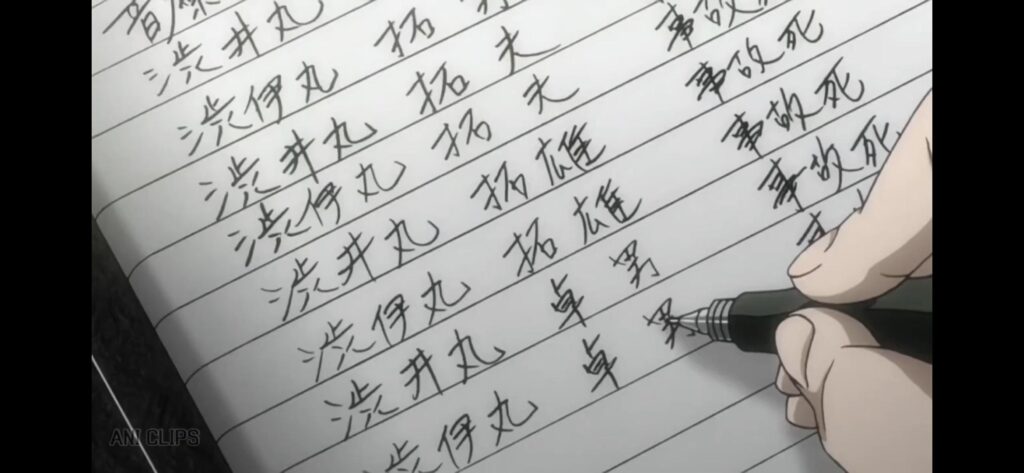 音
渋井丸
渋伊丸 拓男
渋井丸 拓夫
渋伊丸 拓夫 事故死
渋井丸 拓雄 事故死
渋伊丸 拓雄 事故死
渋井丸 卓男 事故死
渋伊丸 卓男
ANI CLIPS